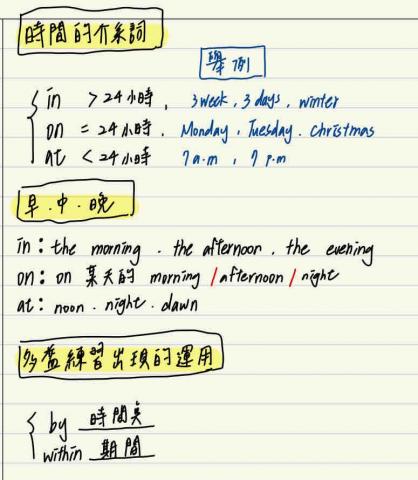 時間的介系詞
舉例
in > 24小時, 3 week, 3 days, winter
on = 24小時, Monday, Tuesday. Christmas
at < 24小時 7 a.m, 7 p.m
早.中.晚
in: the morning. the afternoon. the evening
on: on 某天的 morning / afternoon / night
at: noon. night. dawn
多益練習出現的運用
by 時間點
within 期間